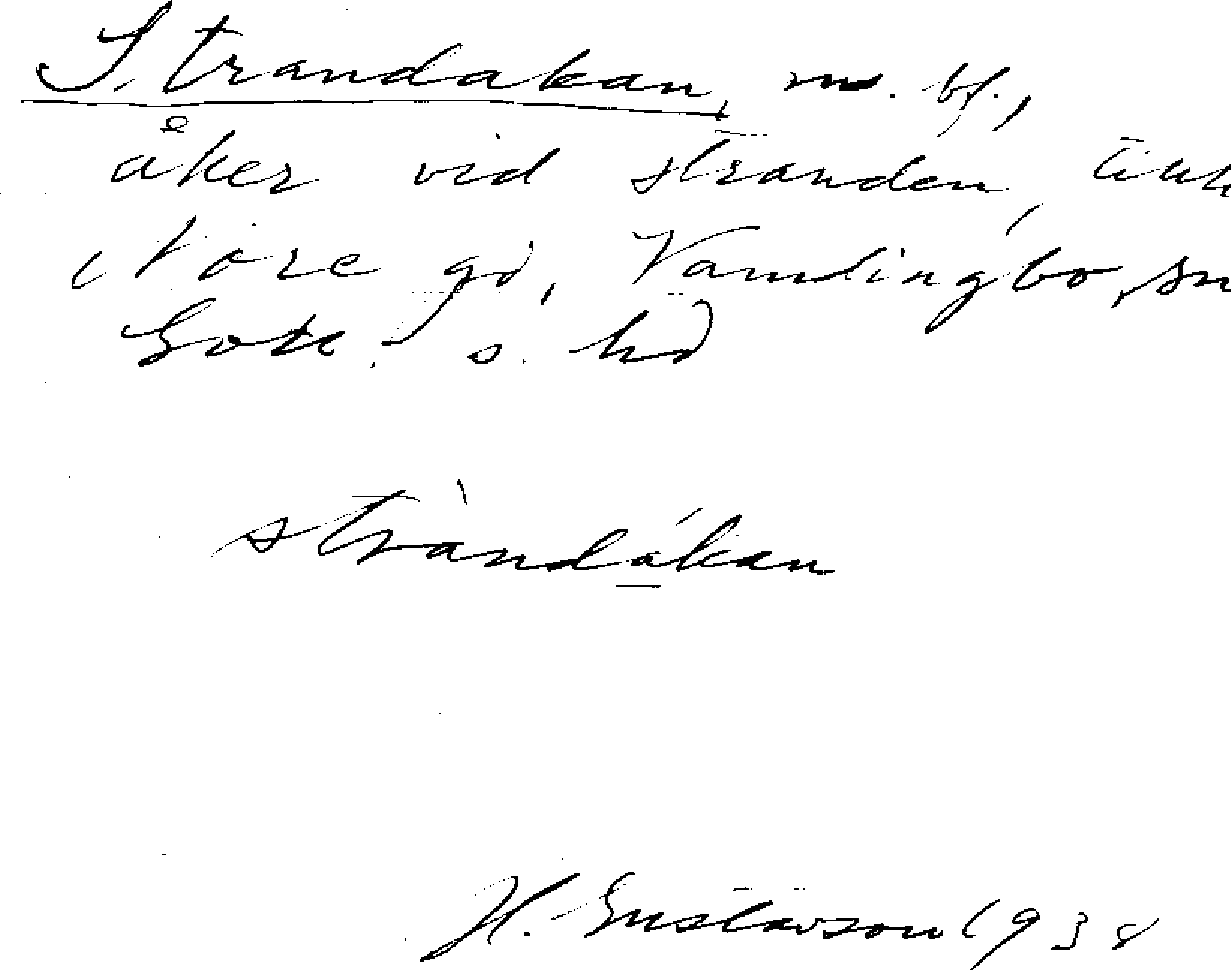 Strandakan, m. bf.,
åker vid stranden,
Nore gd, Vamlingbo sn
Gotl. s. hd
stràndákan
H. Gustavson 1938